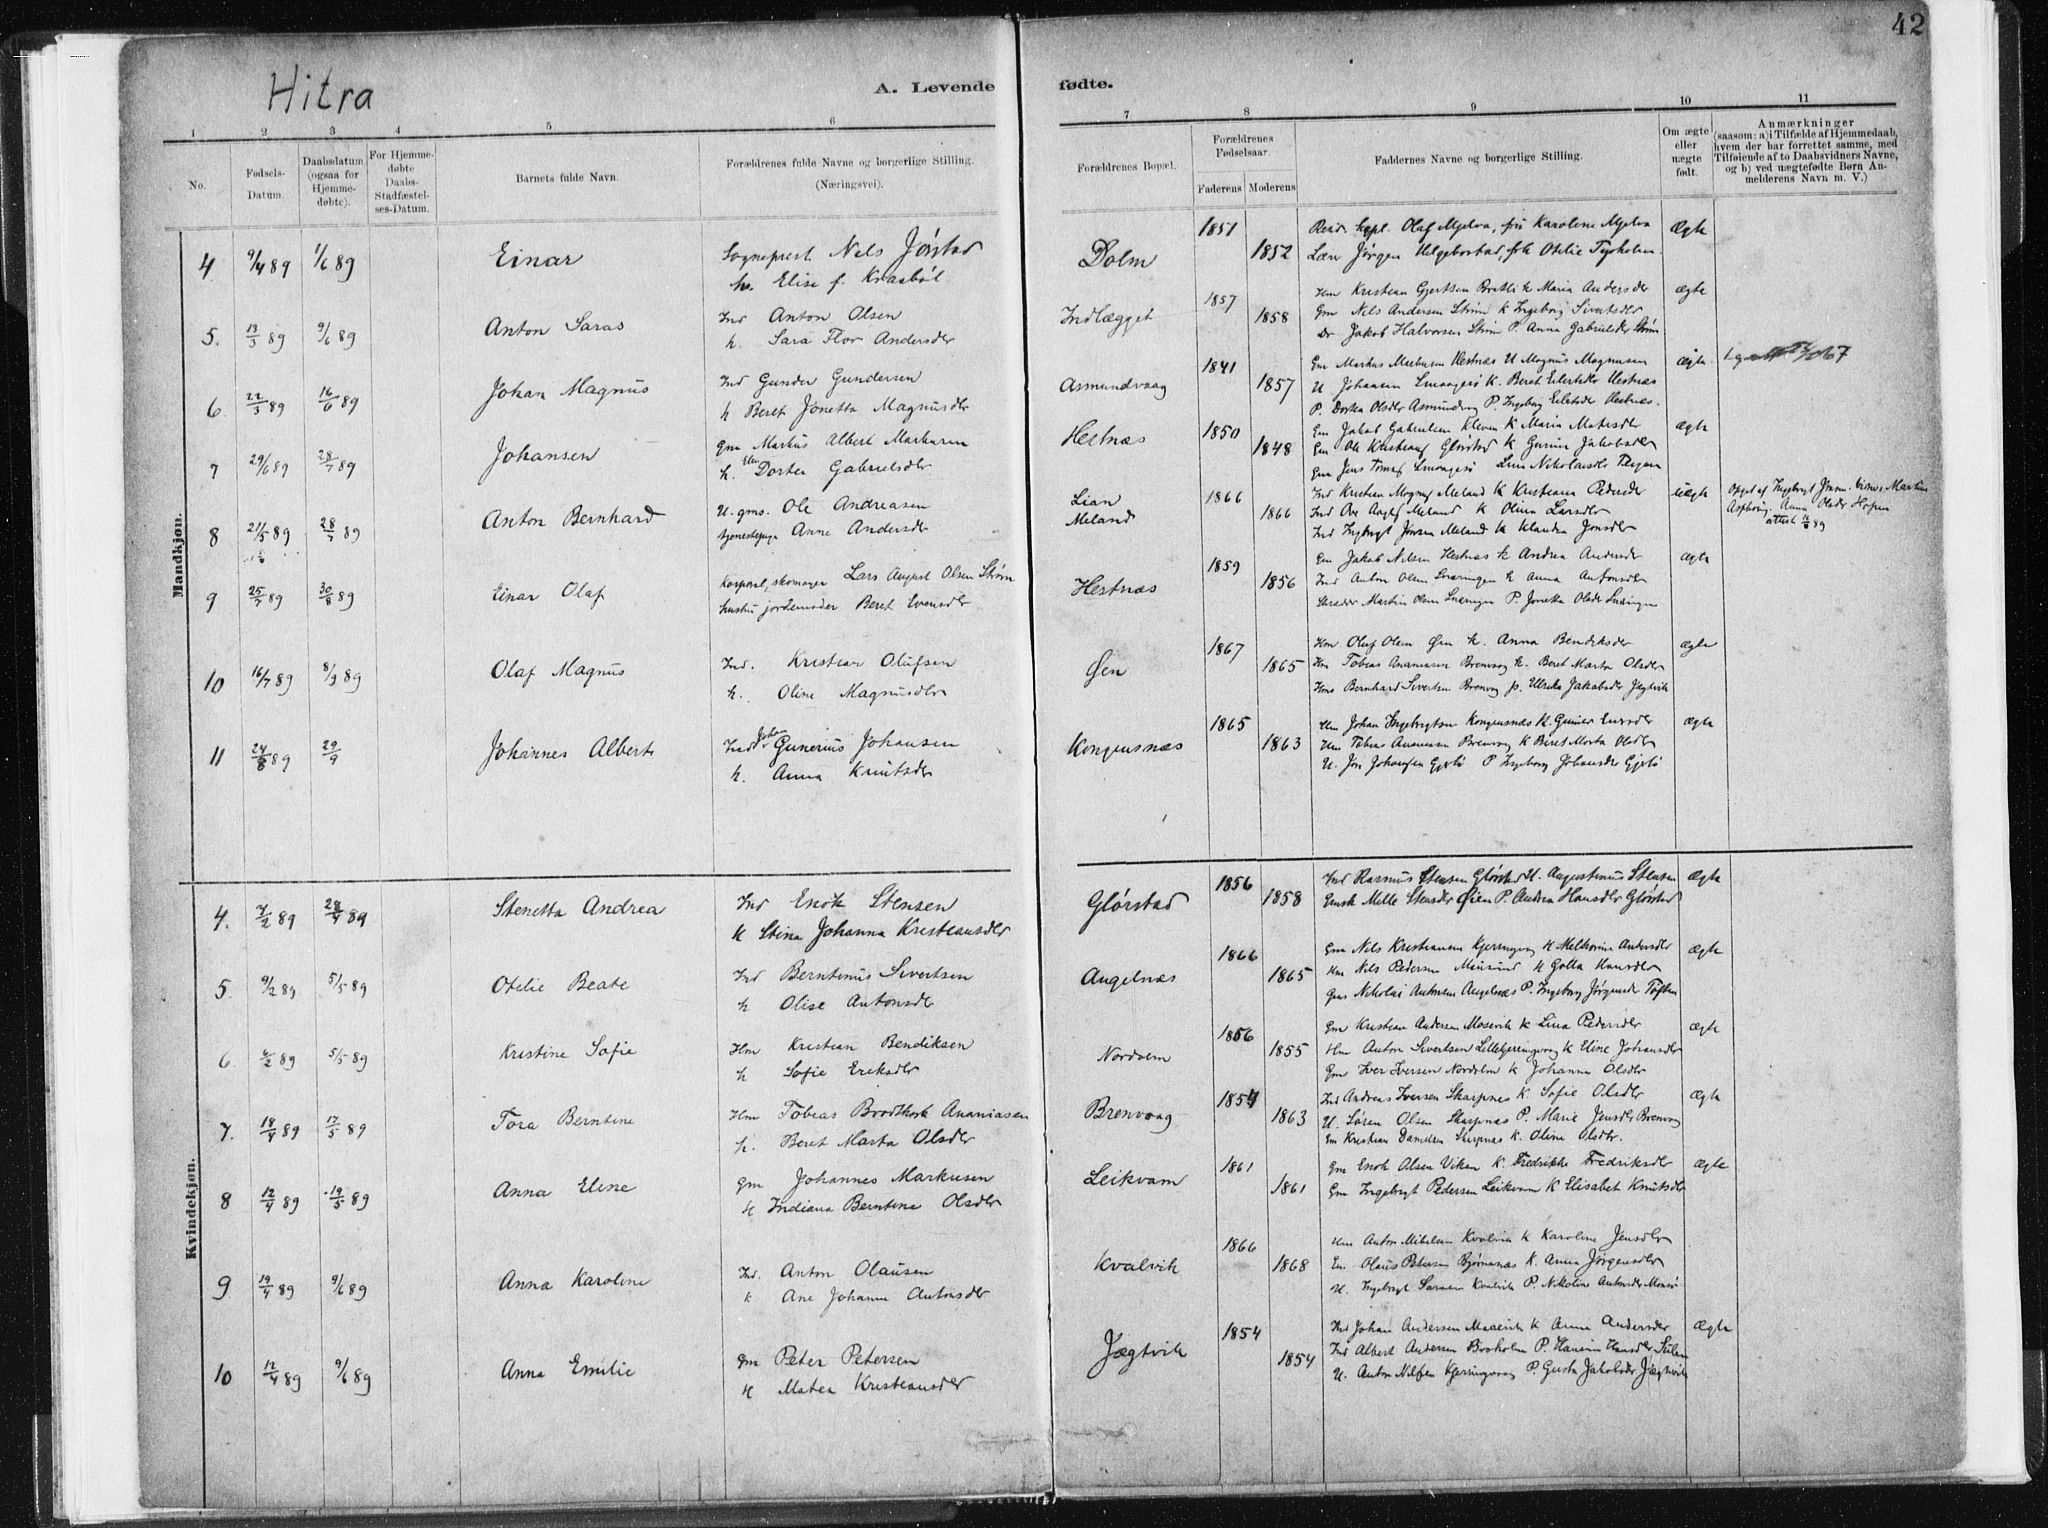 42
Hitra
A. Levende fødte.
1 2 3 4 5 6 7 8 9 10 11
No.
Fødsels-Datum.
Daabsdatum (ogsaa for Hjemme-døbte).
For Hjemme-døbte Daabs-Stadfæstel-ses-Datum.
Barnets fulde Navn.
Forældrenes fulde Navne og borgerlige Stilling. (Næringsvei).
Forældrenes Bopæl.
Forældrenes Fødselsaar.
Faderens Moderens
Faddernes Navne og borgerlige Stilling.
Om ægte eller uægte født.
Anmærkninger (saasom: a) i Tilfælde af Hjemmedaab, hvem der har forrettet samme, med Tilføiende af to Daabsvidners Navne, og b) ved uægtefødte Børn Anmelderens Navn m. V.)
Mandkjøn.
4. 9/4 89 1/6 89 Einar Sogneprest Nels Jørstad
Elise f. Kraabøl
Dolm 1851 1852 Olaf Mjelva, fru Karoline Mjelva ægte
Jørgen Helgebostad, Otelie
5. 13/3 89 9/6 89 Anton Saras Ind Anton Olsen
h. Sara Flor Andersdr
Indlægget 1857 1858 Hm Kristian Gjertsen Bratli k Maria Andersdr ægte
Gm Nils Andersen Strøm k Ingeborg Sivertsdr
Dr Jakob Halvorsen Strøm P. Anna Gabrielsdr Strøm
6. 22/3 89 16/6 89 Johan Magnus Ind Gunder Gundersen
h Beret Jonetta Magnusdr
Asmundvaag 1841 1857 Gm Markus Hestnæs U Magnus Magnusen ægte
U Johansen k. Beret Eilertsdr Hestnæs
P. Dortea Olsdr Asmundvag P. Ingeborg Eilertsdr Hestnæs.
7 29/6 89 28/7 89 Johansen Gm Markus Albert Markusen
h. Elen Dortea Gabrielsdr
Hestnæs 1850 1848 Gm Jakob Gabrielsen Kleven k Maria ægte
Gm Ole Glørstad k Jakobsdr
Gm Jens
8 21/5 89 28/7 89 Anton Bernhard U. gms. Ole Andreasen
tjenestepige Anne Andersdr
Lian
Meland 1866 1866 Ind Kristian Meland k Kristiana Pedersdr uægte
Ind Meland k Olina Larsdr
Ind Ingbrigt Jonsen Meland k Klaudia Jonsdr
9 25/7 89 30/8 89 Einar Olaf Korporal, skomager Lars August Olsen Strøm
hustru jordemoder Beret Evensdr
Hestnæs 1859 1856 Gm Jakob Nilsen Hestnæs k Andrea Andersdr ægte
Ind Anton Olsen k Anna Antonsdr
Skræder Martin Olsen P. Jonetta Olsdr
10 16/7 89 8/9 89 Olaf Magnus Ind. Kristian Olufsen
h. Oline Magnusdr
Øen 1867 1865 Hm Oluf Olsen Øen k. Anna Bendiksdr ægte
Hm Tobias Ananiasen Brenvog k. Beret Marta Olsdr
Hms Bernhard Sivertsen Brenvog p. Ulrika Jakobsdr Jægtvik
11 24/8 89 29/9 Johannes Albert Ind Johan Gunerius Johansen
h. Anna Knutsdr
Kongensnæs 1865 1863 Hm Johan Ingebrigtsen Kongensnæs k. ægte
Hm Tobias Ananiasen Brenvog k Beret Marta Olsdr
U. Jon Johansen P Ingeborg Johansdr
Kvindekjøn.
4. 7/2 89 28/4 89 Stenetta Andrea Ind Enok Stensen
k Stina Johanna Kristiansdr
Glørstad 1856 1858 Ind Rasmus Stensen Glørstad U. Augustinus Stensen ægte
Melle Stensdr Øien P. Andrea Hansdr Glørstad
5. 9/2 89 5/5 89 Otelie Beate Ind Berntinus Sivertsen
h Olise Antonsdr
Angelnæs 1866 1865 Gm Nils Kristiansen Kjerringvog k Andersdr ægte
Hm Nils Pedersen k Golla Hansdr
Gms Nikolai Antonsen Angelnæs P. Ingeborg Jørgensdr Toften
6. 5/5 89 Kristine Sofie Hm Kristian Bendiksen
h Sofie Eriksdr
Nordolm 1856 1855 Gm Kristian Andersen k Lina Pedersdr ægte
Hm Anton Sivertsen Lillekjerringvog k Eline Johansdr
Gm Iver Iversen Nordolm k Johanna Olsdr
7. 18/4 89 17/5 89 Tora Berntine Hm Tobias Brodtkorb Ananiasen
h. Beret Marta Olsdr
Brenvoag 1857 1863 Ind Andreas Iversen Skarpnes k. Sofie Olsdr ægte
U. Søren Olsen Skarpnæs P. Marie Jensdr Brenvog
Gm Kristian Danielsen Skarpnæs k. Oline Olsdr.
8 12/4 89 19/5 89 Anna Eline Gm Johannes Markusen
k Indiana Berntine Olsdr
Leikvam 1861 1861 Gm Enok Olsen Viken k. Fredrikke Fredriksdr ægte
Gm Ingebrigt Pedersen Leikvam k Elisabet Knutsdr
9 19/4 89 9/6 89 Anna Karoline Ind. Anton Olausen
k Ane Johanna Antonsdr
Kvalvik 1866 1868 Hm Anton Mikelsen Kvalvik k Karoline Jensdr
Olaus Petersen Bjørnanæs k. Anna Jørgensdr
U. Ingebrigt Kvalvik P. Nikoline Antonsdr
10 12/4 89 9/6 89 Anna Emilie Gm Peter Petersen
k Matea Kristiansdr
Jægtvik 1854 1854 Ind Johan Andersen k Anna Andersdr ægte
Ind Albert Andersen Boxholm P. Hansdr
U. Anton Nilsen Kjerringvog P. Gusta Jakobsdr Jægtvik